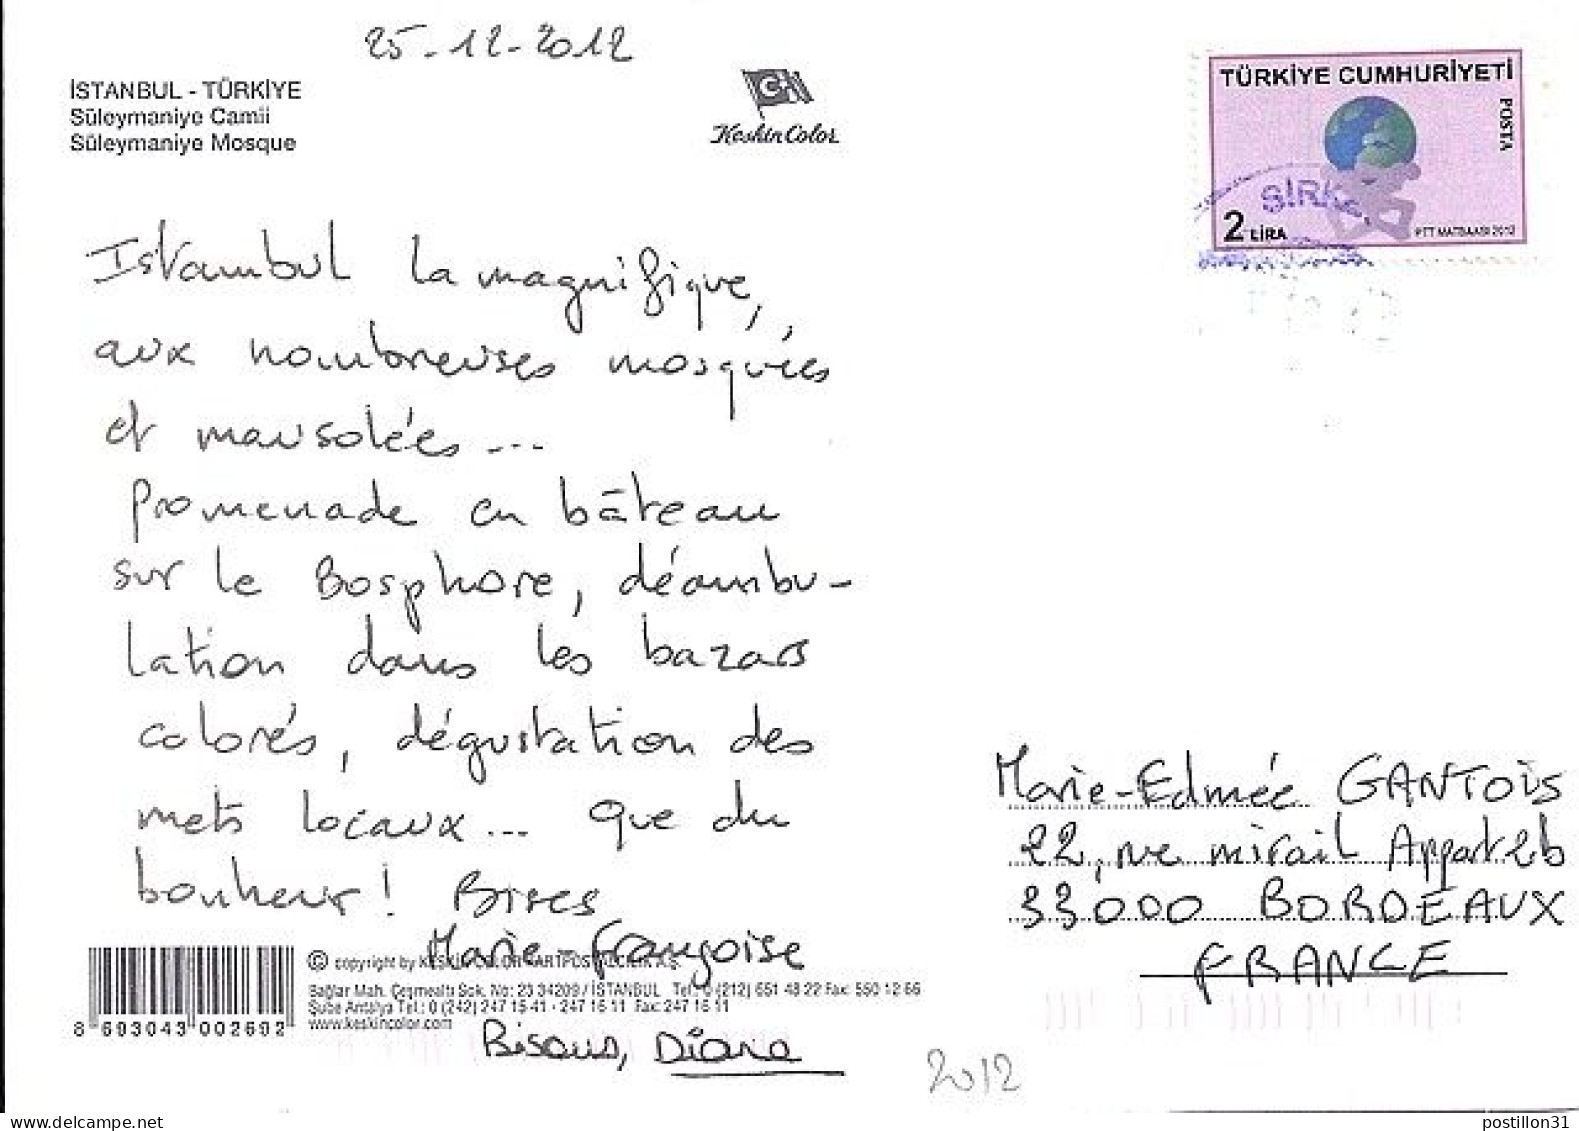 25-12-2012
İSTANBUL - TÜRKİYE
Süleymaniye Camii
Süleymaniye Mosque
Keskin Color
TÜRKİYE CUMHURİYETİ
POSTA
SİRK
2 LİRA
PTT MATBAASI 2012
Istambul la magnifique,
aux nombreuses mosquées
et mausolées...
Promenade en bâteau
sur le Bosphore, déambu-
lation dans les bazars
colorés, dégustation des
mets locaux... que du
bonheur! Bises
Marie-Françoise
Bisous, Diana
Marie-Edmée GANTOIS
22, rue mirail Appart 2b
33000 BORDEAUX
FRANCE
© copyright by KESKİN COLOR KARTPOSTALCILIK A.Ş.
Sağlar Mah. Çeşmealtı Sok. No: 23 34209 / İSTANBUL Tel: 0 (212) 651 48 22 Fax: 550 12 66
Şube Antalya Tel.: 0 (242) 247 15 41 - 247 16 11 Fax: 247 16 11
www.keskincolor.com
8 693043 002602
2012
delcampe.net
postillon31